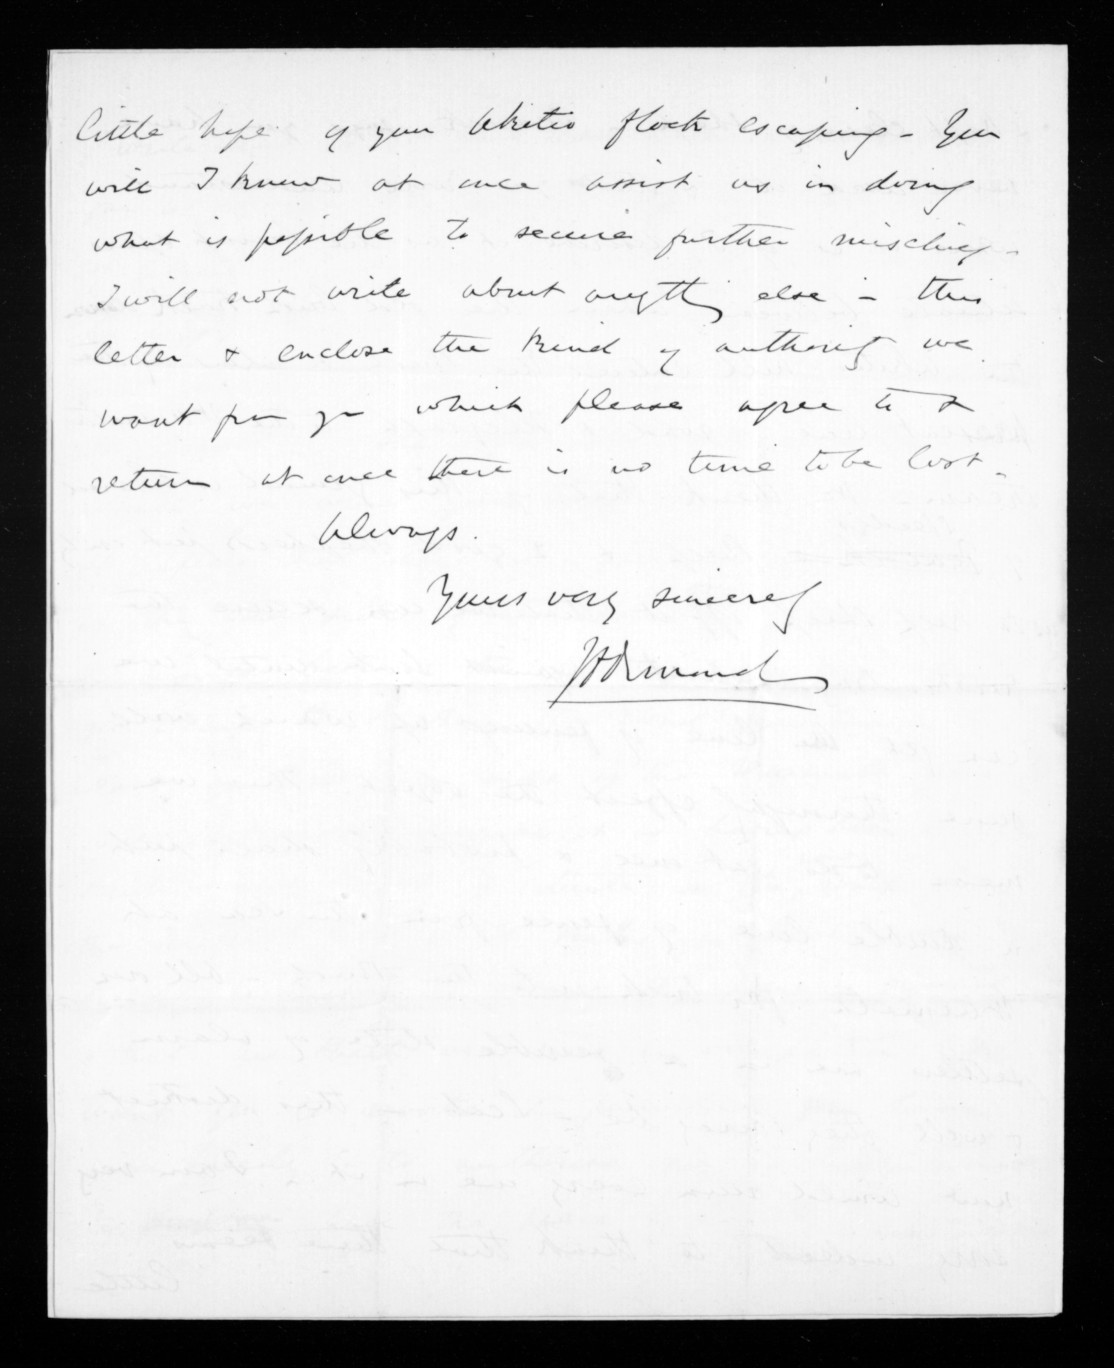 little hope of your Akitio flock escaping - You
will I know at once assist us in doing
what is possible to secure further mischief -
I will not write about anything else in this
letter & enclose the kind of authority we
want from you which please agree to &
return at once there is no time to be lost -
Always.
Yours very sincerely
JD Ormond